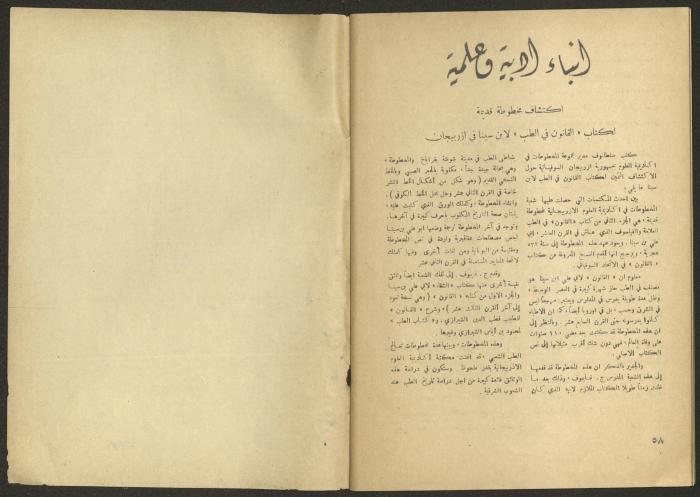 انباء ادبية وعلمية
اكتشاف مخطوطة قديمة
لكتاب « القانون في الطب » لابن سينا في اذربيجان
كتب سلطانوف مدير مجموعة المخطوطات في
اكاديمية العلوم لجمهورية اذربيجان السوفياتية حول
الاكتشاف الثمين لكتاب القانون في الطب لابن
سينا ما يلي :
بين احدث المكتسبات التي حصلت عليها شعبة
المخطوطات في اكاديمية العلوم الاذربيجانية مخطوطة
قديمة ، هي الجزء الثاني من كتاب « القانون » في الطب
العلامة والفيلسوف الذي عاش في القرن العاشر ، ابي
علي بن سينا . ويعود عهد هذه المخطوطة الى سنة
هجرية ، ويرجح انها اقدم النسخ المعروفة من كتاب
« القانون » في الاتحاد السوفياتي .
معلوم ان « القانون » لابي علي ابن سينا هو
مصنف في الطب حاز شهرة كبيرة في العصر الوسيط ،
وظل مدة طويلة يدرس في المدارس ويعتبر مرجعاً ليس
في الشرق وحسب ، بل في اوروبا ايضاً ، كما ان الاطباء
كانوا يدرسونه حتى القرن السابع عشر . وبالنظر الى
ان هذه المخطوطة قد كتبت بعد مضي ١١٠ سنوات
على وفاة العالم ، فهي دون شك اقرب مثيلاتها الى نص
الكتاب الاصلي .
والجدير بالذكر ان هذه المخطوطة قد قدمها
الى هذه الشعبة المدرس ج . وذلك بعد ما
زمناً طويلا الكتاب الملازم لابيه الذي كان
يتعاطى الطب في مدينة شوشة بقراباخ . والمخطوطة ،
وهي بحالة جيدة جداً ، مكتوبة بالحبر الصيني وبالخط
النسخي القديم ( وهو شكل من اشكال الخط انتشر
خاصة في القرن الثاني عشر وحل محل الخط الكوفي ) .
وانشاء المخطوطة ، وكذلك الورق الذي كتبت عليه ،
يثبتان صحة التاريخ المكتوب باحرف كبيرة في آخرها .
وتوجد في آخر المخطوطة ترجمة وضعها ابو علي بن سينا
لبعض مصطلحات عقاقيرية واردة في نص المخطوطة
ومقتبسة من اليونانية ومن لغات اخرى . وفيها كذلك
لائحة المقاييس المستعملة في القرن الثاني عشر .
وقدم ج . الى تلك الشعبة ايضاً وثائق
نفيسة اخرى منها كتاب « الشفاء » لابي علي بن سينا
والجزء الاول من كتابه « القانون » ( وهي نسخة تعود
الى آخر القرن الثالث عشر ) ، وشرح « القانون »
لتعليب قطب الدين الشيرازي ، و « كتاب الطب »
لمحمود بن الياس الشيرازي وغيرها .
وهذه المخطوطات ، وبينها عدة مخطوطات تعالج
الطب الشعبي ، قد اغنت مكتبة اكاديمية العلوم
الاذربيجانية بقدر ملحوظ . وستكون في دراسة هذه
الوثائق فائدة كبيرة من اجل دراسة تاريخ الطب عند
الشعوب الشرقية .
٥٨